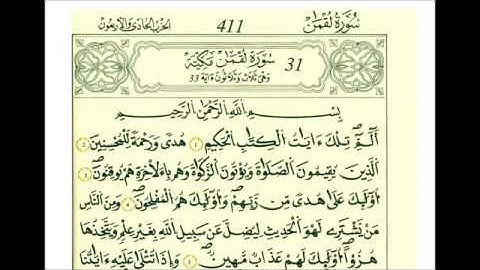 سُورَةُ لُقْمَٰنَ 411 الحزب الحادي والأربعون
31 سُورَةُ لُقْمَٰنَ مَكِّيَّة
وَهِيَ ثَلَاثٌ وَثَلَاثُونَ ءَايَة 33
بِسْمِ اِللَّهِ اِلرَّحْمَٰنِ اِلرَّحِيمِ
أَلَٓمِّٓ تِلْكَ ءَايَٰتُ اُلْكِتَٰبِ اِلْحَكِيمِ ١ هُدىً وَرَحْمَةً لِّلْمُحْسِنِينَ ٢
اَلذِينَ يُقِيمُونَ اَلصَّلَوٰةَ وَيُوتُونَ اَلزَّكَوٰةَ وَهُم بِالَاخِرَةِ هُمْ يُوقِنُونَ ٣
أُوْلَٰٓئِكَ عَلَىٰ هُدىً مِّن رَّبِّهِمْ وَأُوْلَٰٓئِكَ هُمُ اُلْمُفْلِحُونَ ٤ وَمِنَ اَلنَّاسِ
مَنْ يَّشْتَرِے لَهْوَ اَلْحَدِيثِ لِيُضِلَّ عَن سَبِيلِ اِللَّهِ بِغَيْرِ عِلْمٍ وَيَتَّخِذُهَا
هُزُؤاً اُوْلَٰٓئِكَ لَهُمْ عَذَابٌ مُّهِينٌ ٥ وَإِذَا تُتْلَىٰ عَلَيْهِ ءَايَٰتُنَا